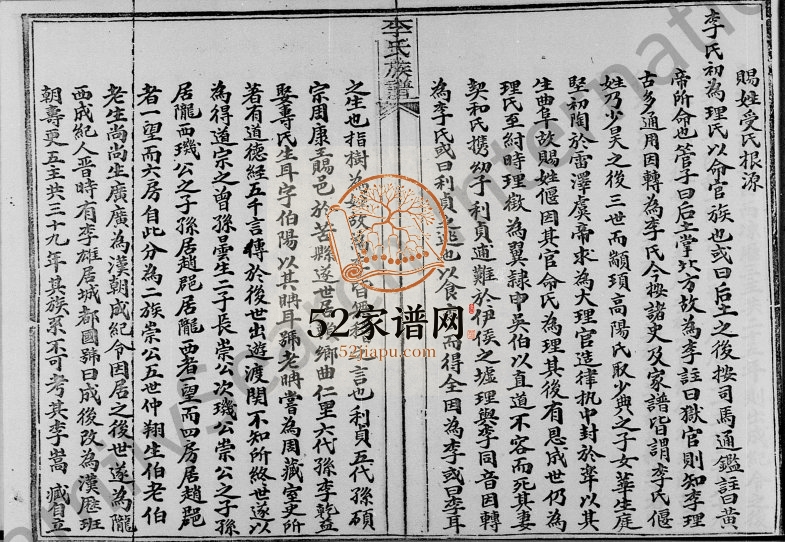 李氏族譜
賜姓受氏根源
李氏初為理氏以命官族也或曰后土之後按司馬通鑑註曰黃
帝所命也管子曰后土掌北方故為李註曰獄官則知李理
古多通用因轉為李氏今按諸史及家譜皆謂李氏偃
姓乃少昊之後三世而顓頊高陽氏取少典之子女華生庭
堅初陶於雷澤虞帝求為大理官造律执中封於率以其
生曲阜故賜姓偃因其官命氏為理其後有恩成世仍為
理氏至紂時理徵為翼隸申吳伯以直道不容而死其妻
契和氏携幼子利貞逋難於伊侯之墟理與李同音因轉
為李氏或曰利貞也以食而得全因為李或曰李耳
之生也指樹為姓故為言也利貞五代孫碩
宗周康王賜邑於苦縣遂世居鄉曲仁里六代孫李乾益
娶壽氏生耳字伯陽以其聃耳號老聃嘗為周藏室史所
著有道德経五千言傳於後世出遊渡関不知所終世遂以
為得道宗之曾孫曇生二子長崇公次璣公崇公之子孫
居隴西璣公之子孫居趙郡居隴西者一望而四房居趙郡
者一望而六房自此分為二族崇公五世仲翔生伯老伯
老生尚尚生廣廣為漢朝成紀令因居之後世遂為隴
西成紀人晋時有李雄居城都國號曰成後改為漢歷班
朝壽更五主共三十九年其族系不可考其李暠 臧自立
52家谱网
52jiapu.com
FamilySearch International